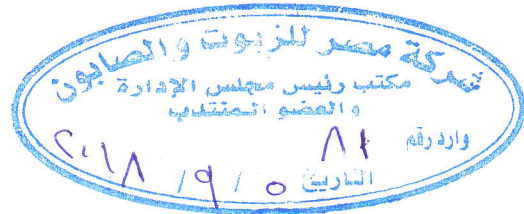 شركة مصر للزيوت والصابون
مكتب رئيس مجلس الإدارة
والعضو المنتدب
وارد رقم ٨١
التاريخ ٥ / ٩ / ٢٠١٨